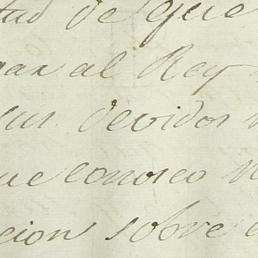 tud de que
nar al Rey
sus devidos
ue conosco
cion sobre